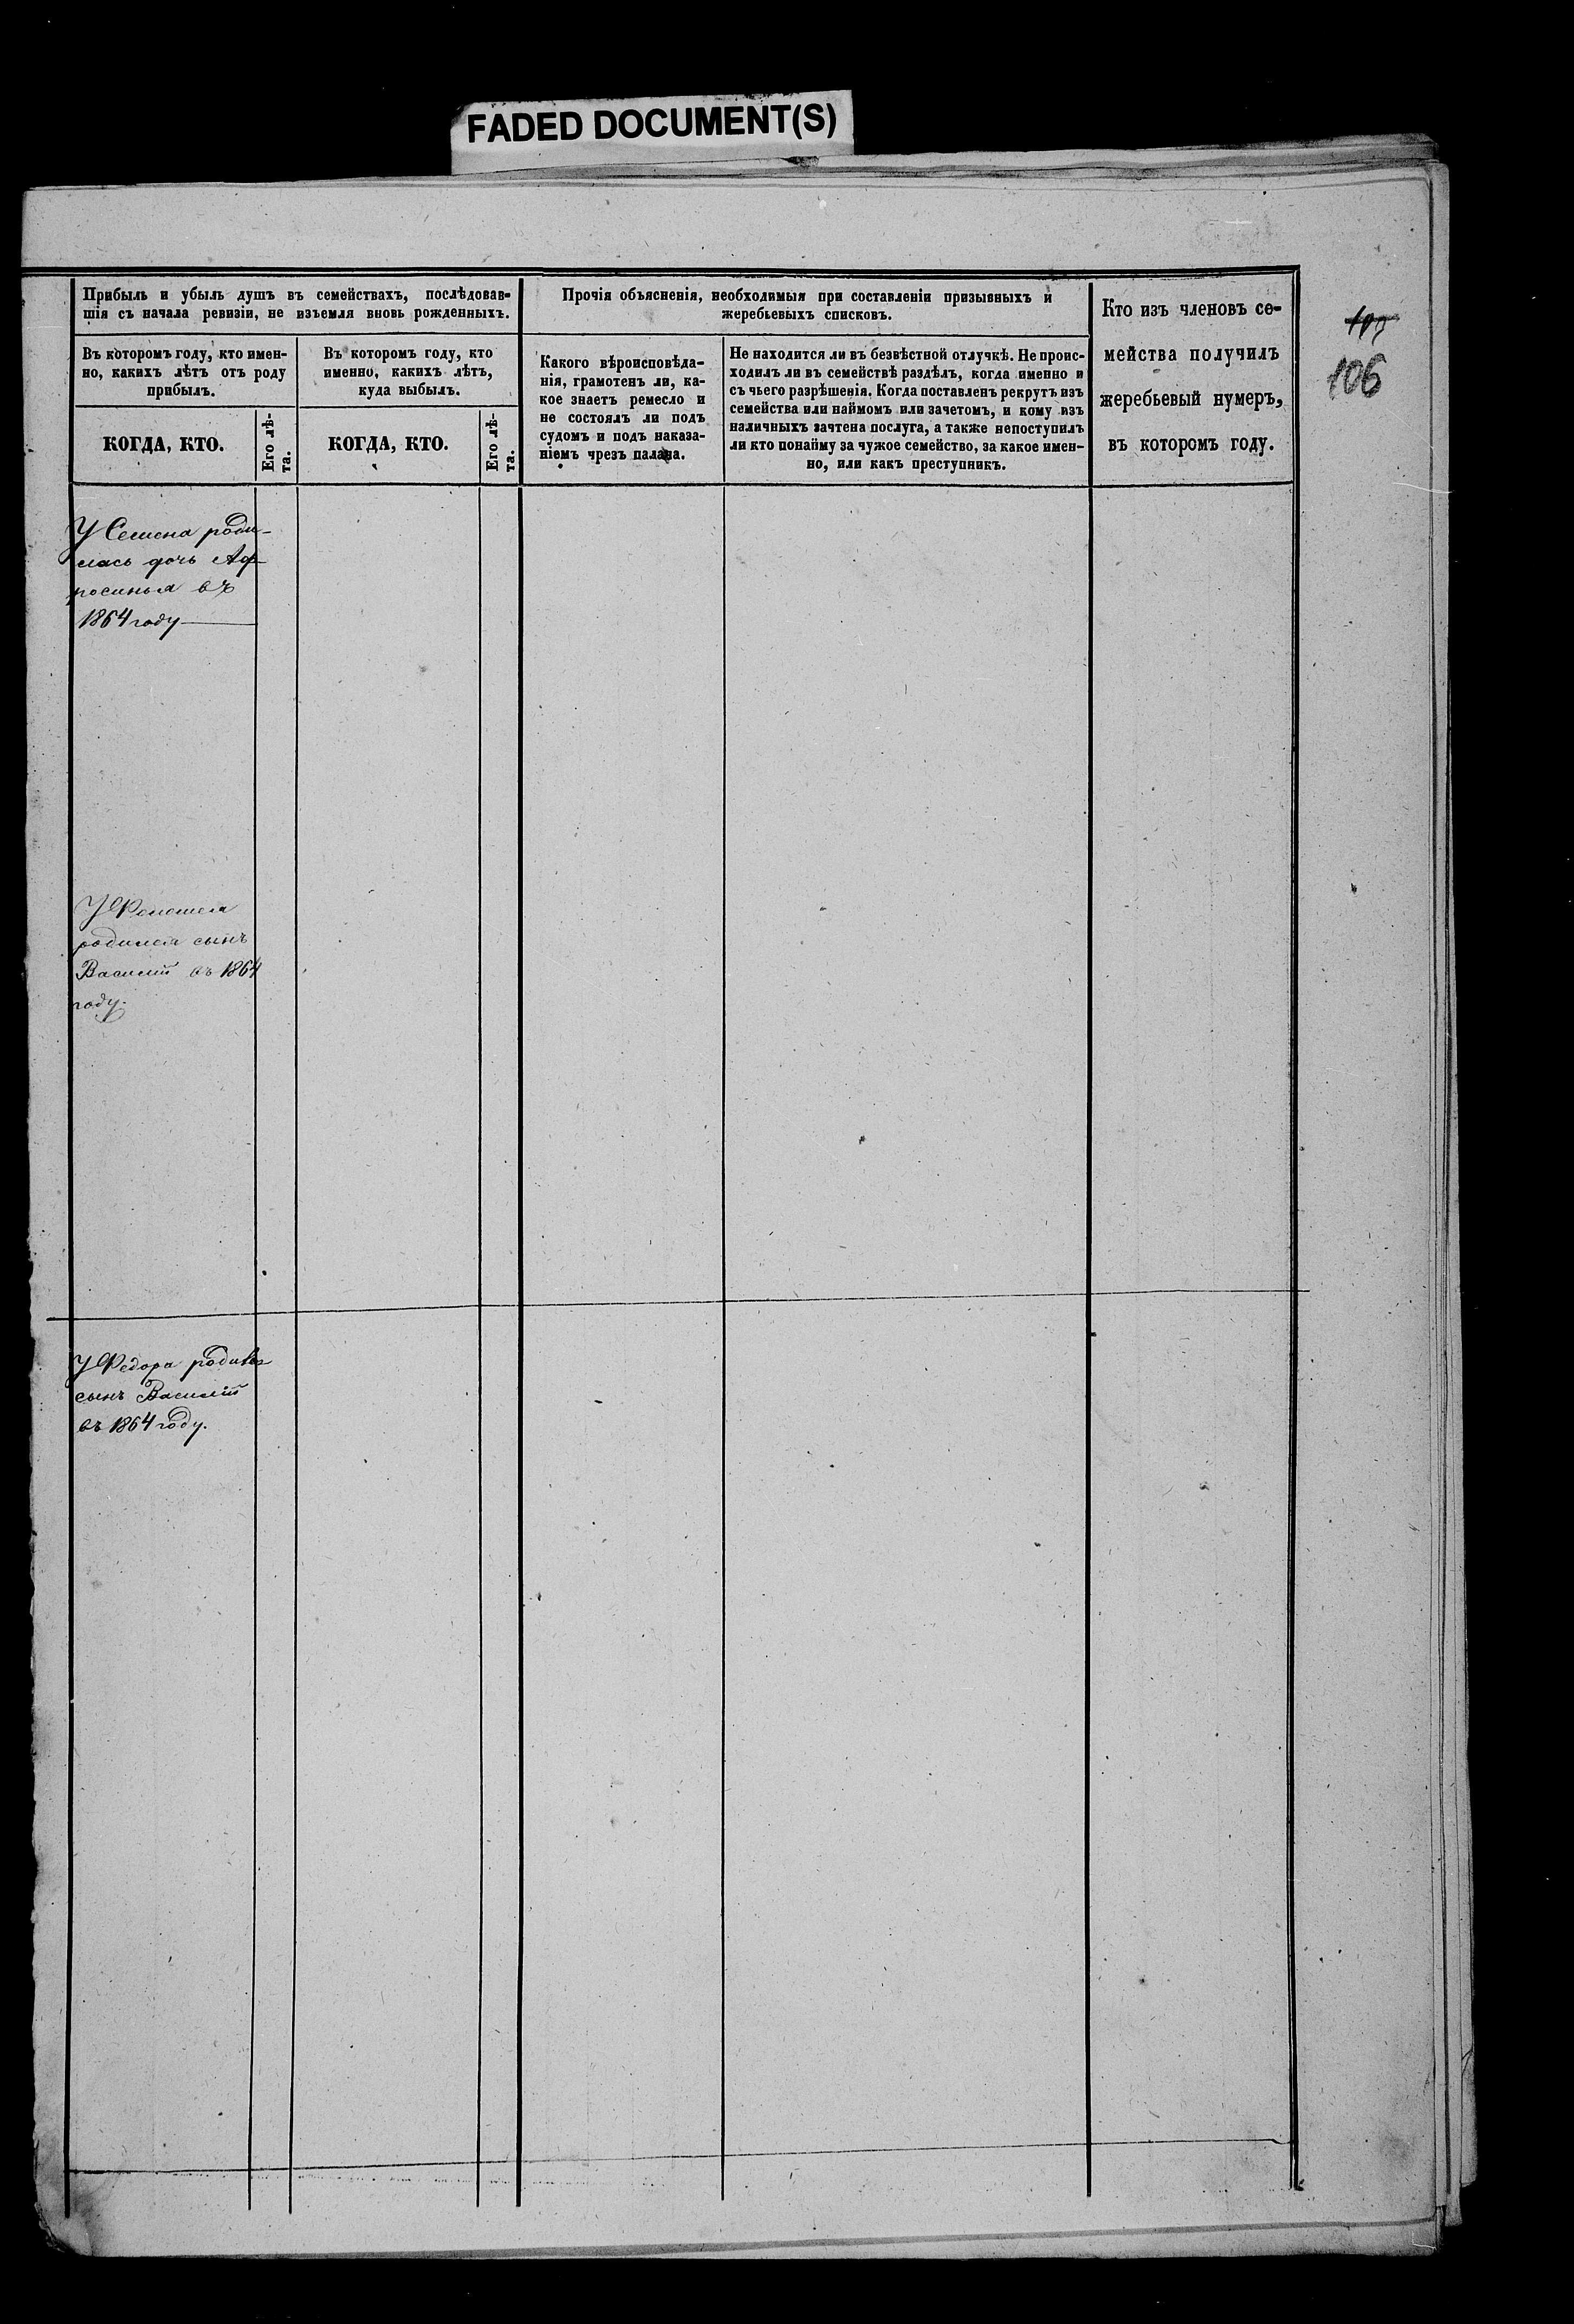 FADED DOCUMENT(S)
Прибыль и убыль душъ въ семействахъ, послѣдовав-
шія съ начала ревизіи, не изъемля вновь рожденныхъ.
Прочія объясненія, необходимыя при составленіи призывныхъ и
жеребьевыхъ списковъ.
Кто изъ членовъ се-
мейства получилъ
жеребьевый нумеръ,
въ которомъ году.
106
Въ которомъ году, кто имен-
но, какихъ лѣтъ отъ роду
прибылъ.
Въ которомъ году, кто
именно, какихъ лѣтъ,
куда выбылъ.
Какого вѣроисповѣда-
нія, грамотенъ ли, ка-
кое знаетъ ремесло и
не состоялъ ли подъ
судомъ и подъ наказа-
ніемъ чрезъ палача.
Не находится ли въ безвѣстной отлучкѣ. Не проис-
ходилъ ли въ семействѣ раздѣлъ, когда именно и
съ чьего разрѣшенія. Когда поставленъ рекрутъ изъ
семейства или наймомъ или зачетомъ, и кому изъ
наличныхъ зачтена послуга, а также непоступилъ
ли кто понайму за чужое семейство, за какое имен-
но, или какъ преступникъ.
КОГДА, КТО.
Его лѣ-
та.
КОГДА, КТО.
Его лѣ-
та.
У Семена роди-
лась дочь Аф-
росинья въ
1864 году
У
родился сынъ
Василій въ 1864
году.
У Федора родился
сынъ Василій
въ 1864 году.